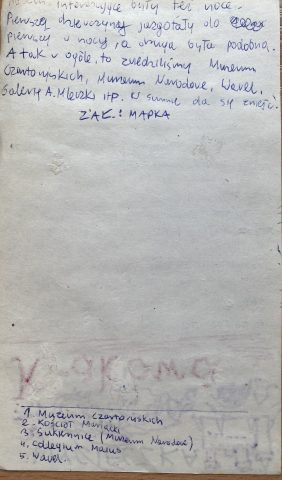 interesujące były też noce.
Pierwszą dziewczyny jazgotały do
pierwszej w nocy, a druga była podobna.
A tak w ogóle, to zwiedziliśmy Muzeum
Czartoryskich, Muzeum Narodowe, Wawel,
Galerię A. Mleczki itp. W sumie da się znieść.
ZAŁ.: MAPKA
1. Muzeum Czartoryskich
2. Kościół Mariacki
3. Sukiennice (Muzeum Narodowe)
4. Collegium Maius
5. Wawel